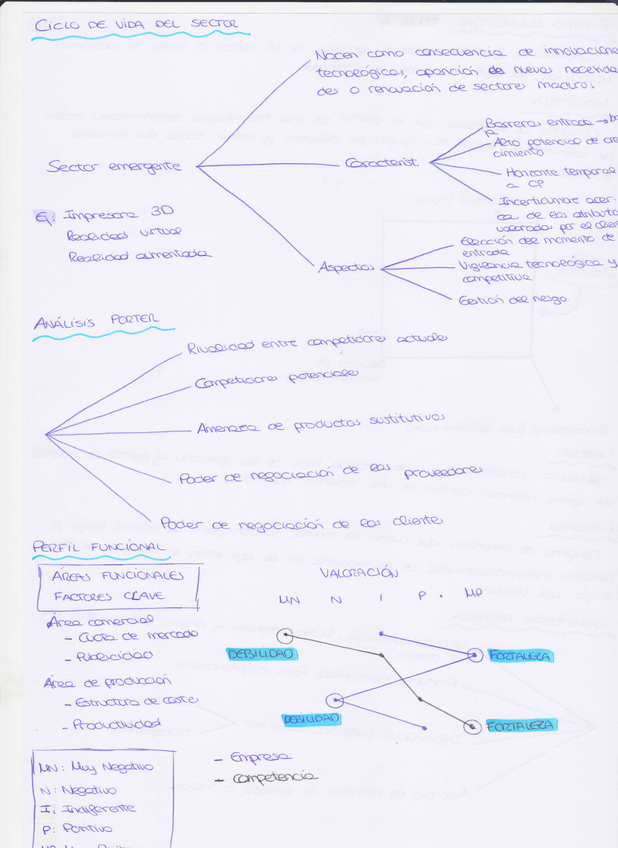 CICLO DE VIDA DEL SECTOR
Nacen como consecuencia de innovacione
tecnológicas, aparición de nuevas necesida
des o renovación de sectores maduros
Sector emergente
Caracterist
Barreras entrada → ba
ja
Alto potencial de cre
cimiento
Horizonte temporal
a CP
Incertidumbre acer-
ca de los atributo
valorados por el client
Ej: Impresora 3D
Realidad virtual
Realidad aumentada
Aspectos
Elección del momento de
entrada
Vigilancia tecnológica y
competitiva
Gestión del riesgo
ANÁLISIS PORTER
Rivalidad entre competidores actuales
Competidores potenciales
Amenaza de productos sustitutivos
Poder de negociación de los proveedores
Poder de negociación de los clientes
PERFIL FUNCIONAL
ÁREAS FUNCIONALES
FACTORES CLAVE
VALORACIÓN
MN N I P. MP
Área comercial
- Cuota de mercado
- Publicidad
DEBILIDAD
FORTALEZA
Área de producción
- Estructura de coste
- Productividad
DEBILIDAD
FORTALEZA
- Empresa
- Competencia
MN: Muy Negativo
N: Negativo
I: Indiferente
P: Positivo